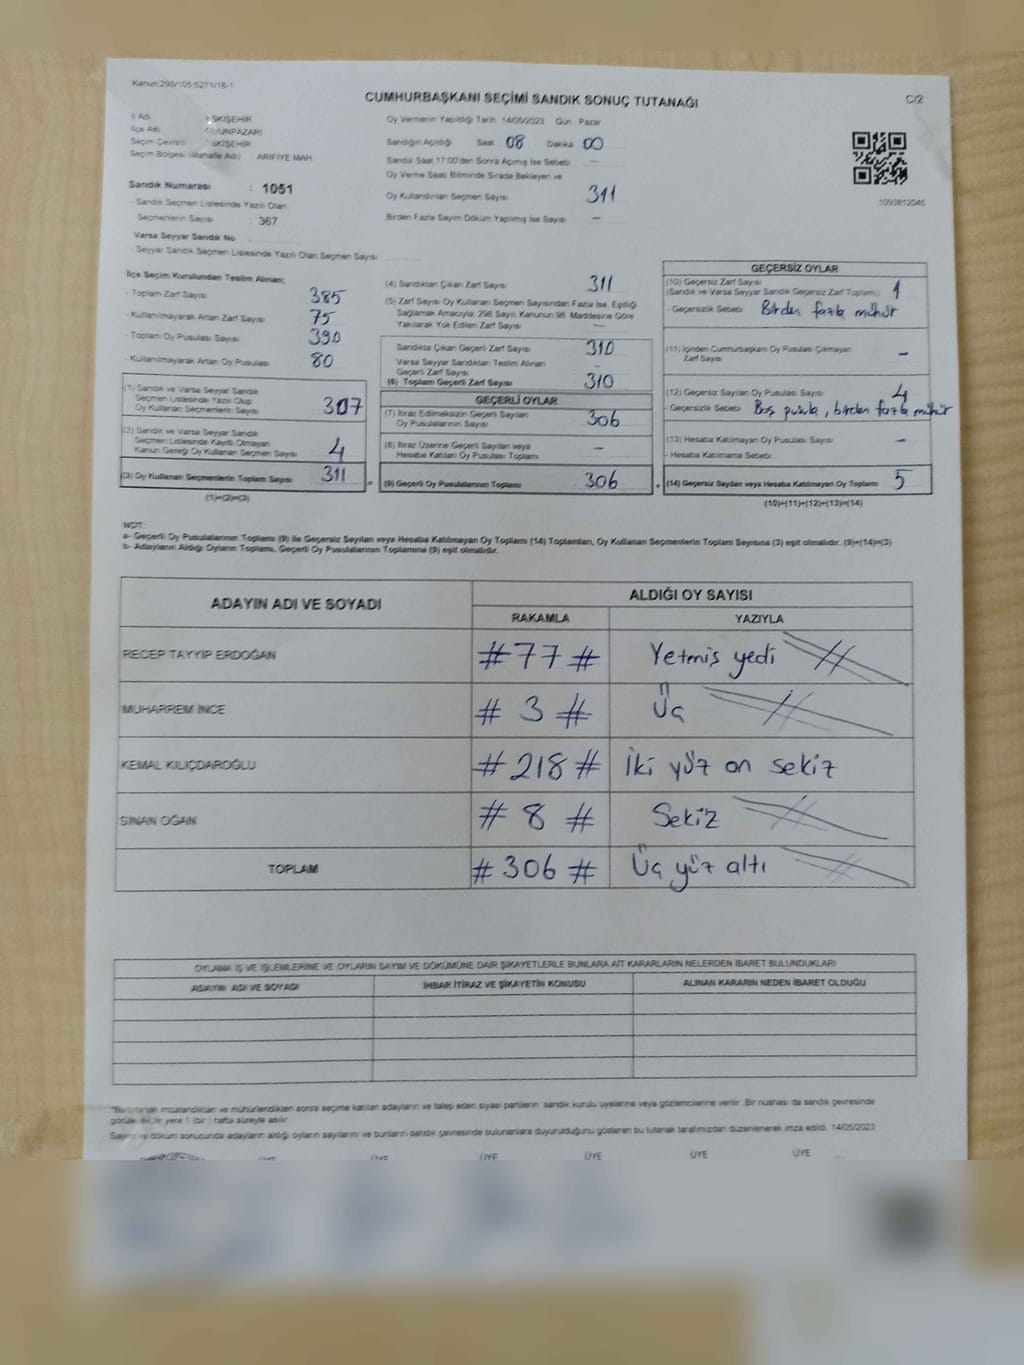 Kanun:298/105;6271/18-1
CUMHURBAŞKANI SEÇİMİ SANDIK SONUÇ TUTANAĞI
C/2
İl Adı ESKİŞEHİR
İlçe Adı
Seçim Çevresi
Seçim Bölgesi (Mahalle Adı) ARİFİYE MAH.
Sandık Numarası : 1051
- Sandık Seçmen Listesinde Yazılı Olan
Seçmenlerin Sayısı : 367
Varsa Seyyar Sandık No
- Seyyar Sandık Seçmen Listesinde Yazılı Olan Seçmen Sayısı
Oy Vermenin Yapıldığı Tarih 14/05/2023 Gün Pazar
Sandığın Açıldığı Saat 08 Dakika 00
Sandık Saat 17:00'den Sonra Açımış İse Sebebi —
Oy Verme Saati Bitiminde Sırada Bekleyen ve
Oy Kullandırılan Seçmen Sayısı 311
Birden Fazla Sayım Döküm Yapılmış İse Sayısı —
1093812045
İlçe Seçim Kurulundan Teslim Alınan;
- Toplam Zarf Sayısı 385
- Kullanılmayarak Artan Zarf Sayısı 75
- Toplam Oy Pusulası Sayısı 390
- Kullanılmayarak Artan Oy Pusulası 80
(1) Sandık ve Varsa Seyyar Sandık
Seçmen Listesinde Yazılı Olup
Oy Kullanan Seçmenlerin Sayısı 307
(2) Sandık ve Varsa Seyyar Sandık
Seçmen Listesinde Kayıtlı Olmayan
Kanun Gereği Oy Kullanan Seçmen Sayısı 4
(3) Oy Kullanan Seçmenlerin Toplam Sayısı 311
(1)+(2)=(3)
(4) Sandıktan Çıkan Zarf Sayısı 311
(5) Zarf Sayısı Oy Kullanan Seçmen Sayısından Fazla İse, Eşitliği
Sağlamak Amacıyla; 298 Sayılı Kanunun 98. Maddesine Göre
Yakılarak Yok Edilen Zarf Sayısı —
Sandıkta Çıkan Geçerli Zarf Sayısı 310
Varsa Seyyar Sandıktan Teslim Alınan
Geçerli Zarf Sayısı —
(6) Toplam Geçerli Zarf Sayısı 310
GEÇERLİ OYLAR
(7) İtiraz Edilmeksizin Geçerli Sayılan
Oy Pusulalarının Sayısı 306
(8) İtiraz Üzerine Geçerli Sayılan veya
Hesaba Katılan Oy Pusulası Toplamı —
(9) Geçerli Oy Pusulalarının Toplamı 306
GEÇERSİZ OYLAR
(10) Geçersiz Zarf Sayısı
(Sandık ve Varsa Seyyar Sandık Geçersiz Zarf Toplamı) 1
- Geçersizlik Sebebi Birden fazla mühür
(11) İçinden Cumhurbaşkanı Oy Pusulası Çıkmayan
Zarf Sayısı —
(12) Geçersiz Sayılan Oy Pusulası Sayısı 4
- Geçersizlik Sebebi Boş pusula, birden fazla mühür
(13) Hesaba Katılmayan Oy Pusulası Sayısı —
- Hesaba Katılmama Sebebi
(14) Geçersiz Sayılan veya Hesaba Katılmayan Oy Toplamı 5
(10)+(11)+(12)+(13)=(14)
NOT:
a- Geçerli Oy Pusulalarının Toplamı (9) ile Geçersiz Sayılan veya Hesaba Katılmayan Oy Toplamı (14) Toplamları, Oy Kullanan Seçmenlerin Toplam Sayısına (3) eşit olmalıdır. (9)+(14)=(3)
b- Adayların Aldığı Oyların Toplamı, Geçerli Oy Pusulalarının Toplamına (9) eşit olmalıdır.
ADAYIN ADI VE SOYADI ALDIĞI OY SAYISI
RAKAMLA YAZIYLA
RECEP TAYYİP ERDOĞAN #77# Yetmiş yedi
MUHARREM İNCE #3# Üç
KEMAL KILIÇDAROĞLU #218# İki yüz on sekiz
SİNAN OĞAN #8# Sekiz
TOPLAM #306# Üç yüz altı
OYLAMA İŞ VE İŞLEMLERİNE VE OYLARIN SAYIM VE DÖKÜMÜNE DAİR ŞİKAYETLERLE BUNLARA AİT KARARLARIN NELERDEN İBARET BULUNDUKLARI
ADAYIN ADI VE SOYADI İHBAR İTİRAZ VE ŞİKAYETİN KONUSU ALINAN KARARIN NEDEN İBARET OLDUĞU
imzalandıktan ve mühürlendikten sonra seçime katılan adayların ve talep eden siyasi partilerin sandık kurulu üyelerine veya gözlemcilerine verilir. Bir nüshası da sandık çevresinde
yere 1 (bir) hafta süreyle asılır.
Sayım ve döküm sonucunda adayların aldığı oyların sayılarını ve bunların sandık çevresinde bulunanlara duyurulduğunu gösteren bu tutanak tarafımızdan düzenlenerek imza edildi. 14/05/2023
ÜYE ÜYE ÜYE ÜYE ÜYE ÜYE